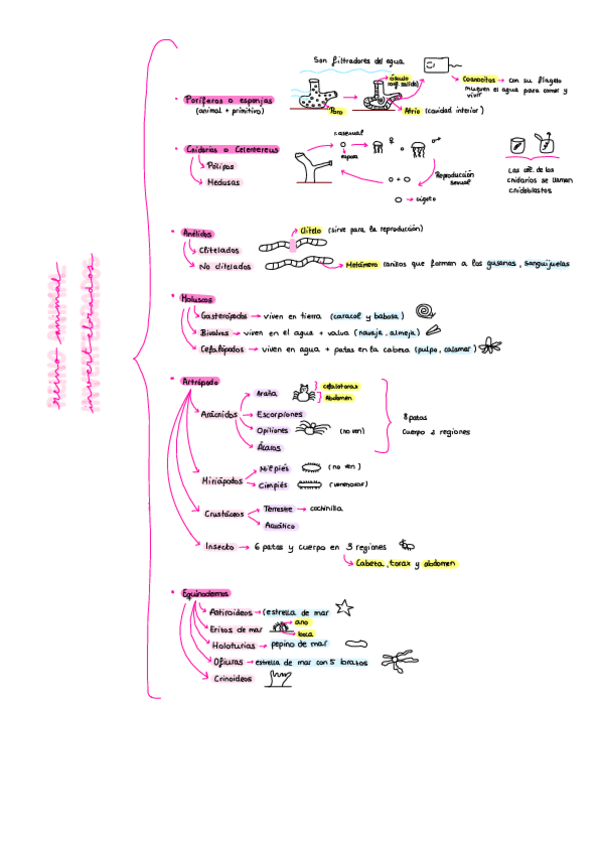 reino animal
invertebrados
Son filtradores del agua
• Poríferos o esponjas
(animal + primitivo)
Poro
ósculo
(orif. salida)
Atrio (cavidad interior)
Coanocitos → con su flagelo
mueven el agua para comer y
vivir
• Cnidarios o Celentereus
Pólipos
Medusas
R asexual
espora
Reproducción
sexual
cigoto
Las cél. de los
cnidarios se llaman
cnidoblastos
• Anélidos
Clitelados
No clitelados
Clitelo (sirve para la reproducción)
Metámero (anillos que forman a los gusanos, sanguijuelas
• Moluscos
Gasterópodos → viven en tierra (caracol y babosa)
Bivalvos → viven en el agua + valva (navaja, almeja)
Cefalópodos → viven en agua + patas en la cabeza (pulpo, calamar)
• Artrópodo
Arácnidos
Araña
cefalotorax
Abdomen
Escorpiones
Opiliones
(no ven)
Ácaros
8 patas
Cuerpo 2 regiones
Miriápodos
Milpiés
(no ven)
Cimpiés
(venenosos)
Crustáceos
Terrestre → cochinilla
Acuático
Insecto → 6 patas y cuerpo en 3 regiones
Cabeza, torax y abdomen
• Equinodermos
Astiroideos → (estrella de mar
Erizos de mar
ano
boca
Holoturias → pepino de mar
Ofiuras → estrella de mar con 5 brazos
Crinoideos